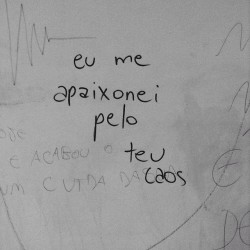 eu me
apaixonei
pelo
teu
caos
E ACABOU O
UM CUIDA DA